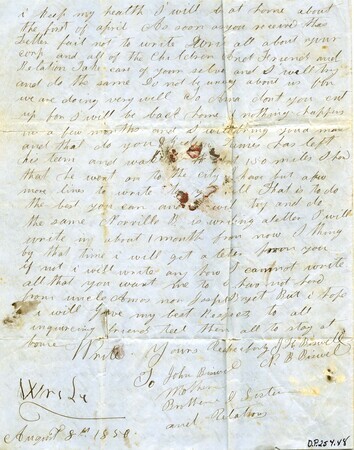 i keep my health I will be at home about
the first of april As soon as you receive this
Letter fail not to write Some all about your
crop and all of the Children And Friends and
Relation Take care of your selves and I will try
and do the same Do not be uneasy about us for
we are doing very well
up for I will be back home if nothing happens
in a few months and I will bring you a man
and that do you James has left
his team and walked 150 miles I heard
that he went on to the city I have but a few
more lines to write That is to do
the best you can and I will try and do
the same R is writing a letter I will
write in about 1 month from now I think
by that time i will get a letter from you
If not i will write any how I cannot write
all that you want me to I has not heard
from uncle Amos nor Jasper yet But i hope
i will Give my best Respects to all
inquireing friends tell them all to stay at
home Write Yours Respectfuly
R B
To John
Mother
Brothers & Sister
and Relations
Write
August 8th 1850
D.P.254.48